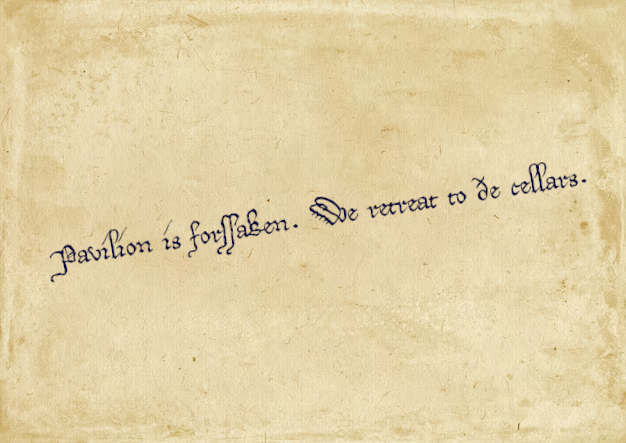 Pavilion is forssaken. We retreat to de cellars.